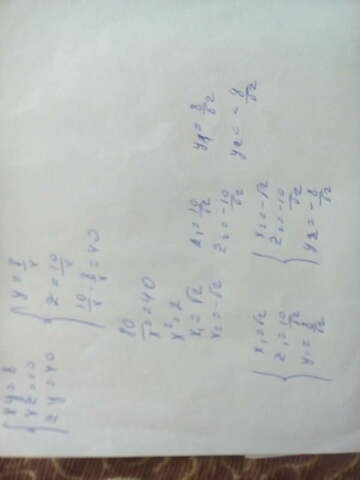 { xy = 8
xz = 10
zy = 40
{ y = 8/x
z = 10/x
10/x · 8/x = 40
80/x² = 40
x² = 2
x₁ = √2
x₂ = -√2
z₁ = 10/√2
z₂ = -10/√2
y₁ = 8/√2
y₂ = -8/√2
{ x₁ = √2
z₁ = 10/√2
y₁ = 8/√2
{ x₂ = -√2
z₂ = -10/√2
y₂ = -8/√2